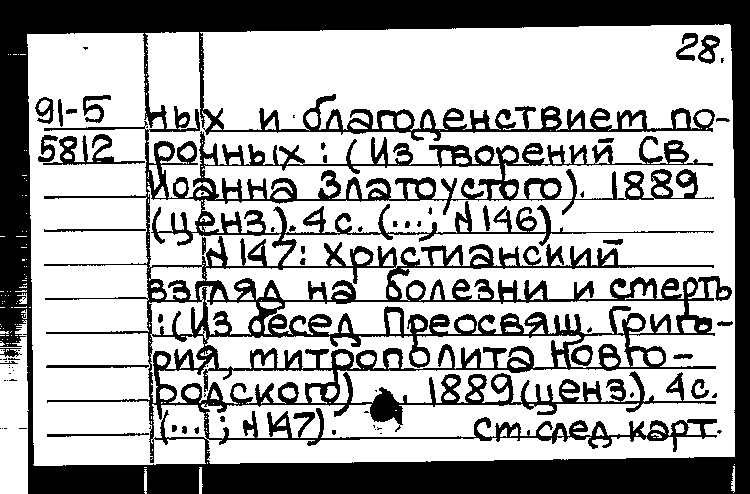 28.
91-5 ных и благоденствием по-
5812 рочных : (Из творений Св.
Иоанна Златоустого). 1889
(ценз.). 4 с. (...; N 146).
N 147: Христианский
взгляд на болезни и смерть
: (Из бесед Преосвящ. Григо-
рия, митрополита Новго-
родского) . 1889 (ценз.). 4 с.
(...; N 147). см. след. карт.